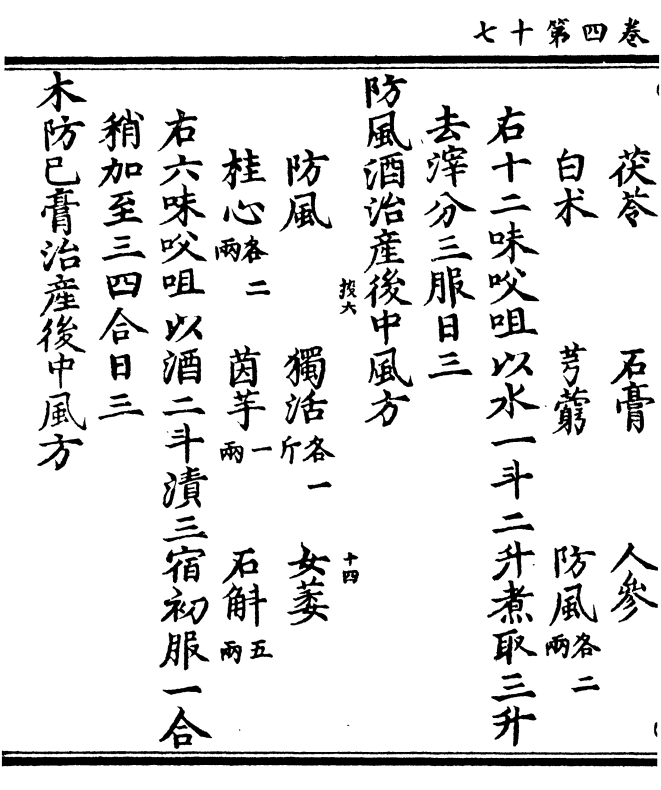 卷四第十七
茯苓 石膏 人參
白术 芎藭 防風各二兩
右十二味㕮咀以水一斗二升煮取三升
去滓分三服日三
防風酒治產後中風方
防風 獨活各一斤 女萎
桂心各二兩 茵芋一兩 石斛五兩
右六味㕮咀以酒二斗漬三宿初服一合
稍加至三四合日三
木防巳膏治產後中風方
十四